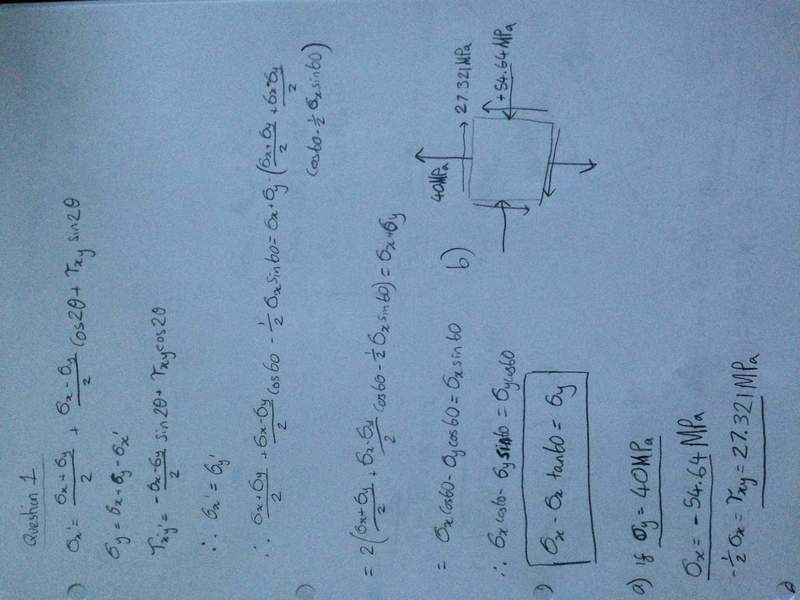 Question 1
) σx' = σx+σy/2 + σx-σy/2 cos2θ + τxy sin2θ
σy = σx + σy - σx'
τxy' = -σx-σy/2 sin2θ + τxy cos2θ
∴ σx' = σy'
) ∴ σx+σy/2 + σx-σy/2 cos60 - 1/2 σx sin60 = σx + σy - (σx+σy/2 + σx-σy/2
cos60 - 1/2 σx sin60)
= 2(σx+σy/2 + σx-σy/2 cos60 - 1/2 σx sin60) = σx+σy
= σx cos60 - σy cos60 = σx sin60
∴ σx cos60 - σy sin60 = σy cos60
) σx - σx tan60 = σy
a) if σy = 40MPa
σx = -54.64 MPa
-1/2 σx = τxy = 27.321 MPa
b)
40MPa
27.321 MPa
+54.64 MPa